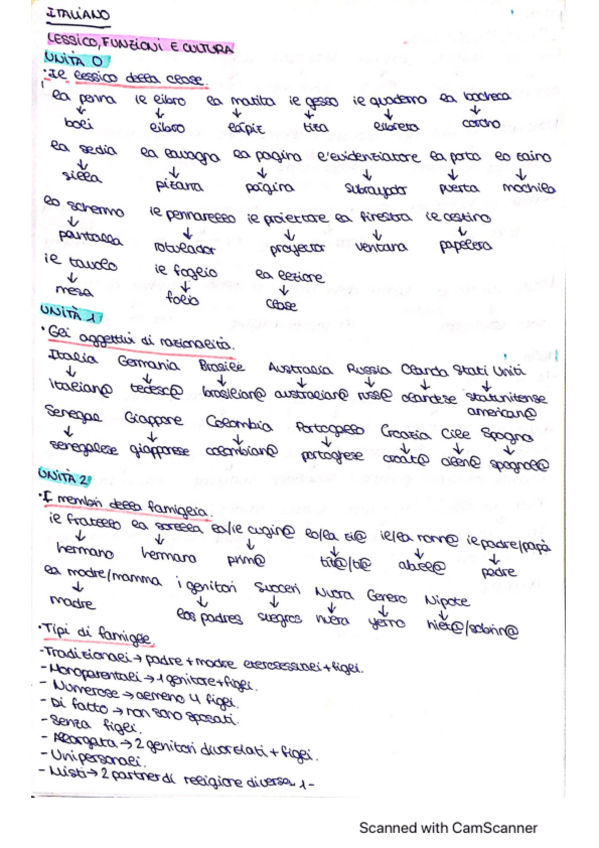 ITALIANO
LESSICO, FUNZIONI E CULTURA
UNITÀ 0
· Il lessico della clase.
la penna il libro la matita il gesso il quaderno la bacheca
↓ ↓ ↓ ↓ ↓ ↓
boli libro lápiz tiza libreta corcho
la sedia la lavagna la pagina l'evidenziatore la porta lo zaino
↓ ↓ ↓ ↓ ↓ ↓
silla pizarra página subrayador puerta mochila
lo schermo il pennarello il proiettore la finestra il cestino
↓ ↓ ↓ ↓ ↓
pantalla rotulador proyector ventana papelera
il tavolo il foglio la lezione
↓ ↓ ↓
mesa folio clase
UNITÀ 1
· Gli aggettivi di nazionalità.
Italia Germania Brasile Australia Russia Olanda Stati Uniti
↓ ↓ ↓ ↓ ↓ ↓ ↓
italian@ tedesc@ brasilian@ australian@ russ@ olandese statunitense
american@
Senegal Giappone Colombia Portogallo Croazia Cile Spagna
↓ ↓ ↓ ↓ ↓ ↓ ↓
senegalese giapponese colombian@ portoghese croat@ cilen@ spagnol@
UNITÀ 2
· I membri della famiglia.
il fratello la sorella la/il cugin@ lo/la zi@ il/la nonn@ il padre/papà
↓ ↓ ↓ ↓ ↓ ↓
hermano hermana prim@ abuel@ padre
la madre/mamma i genitori Suoceri Nuora Genero Nipote
↓ ↓ ↓ ↓ ↓ ↓
madre los padres suegros nuera yerno niet@/sobrin@
· Tipi di famiglie.
- Tradizionali → padre + madre eterosessuali + figli.
- Monoparentali → 1 genitore + figli.
- Numerose → almeno 4 figli.
- Di fatto → non sono sposati.
- Senza figli.
- Allargata → 2 genitori divorziati + figli.
- Unipersonali.
- Misti → 2 partner di religione diversa 1-
Scanned with CamScanner